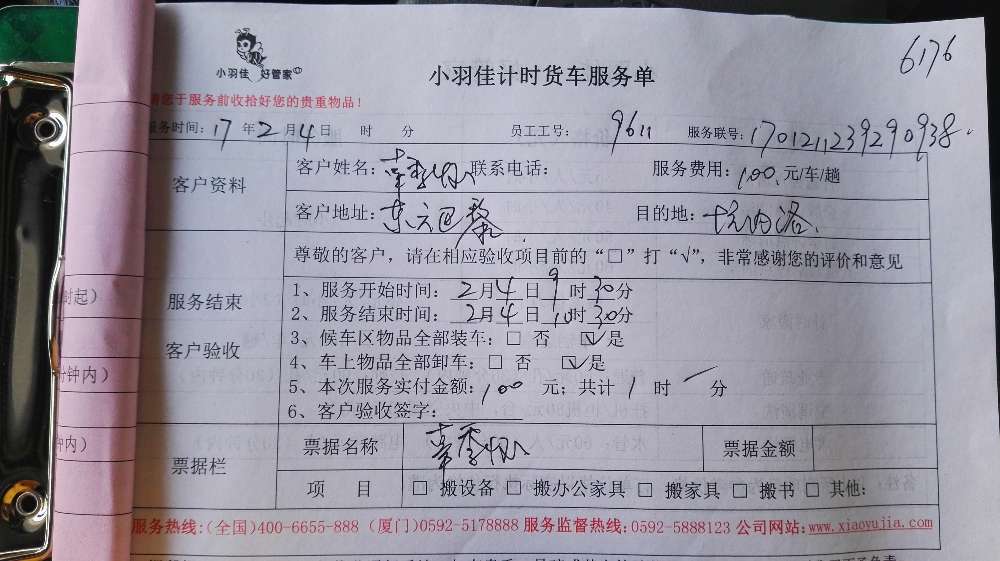 6176
小羽佳 好管家
小羽佳计时货车服务单
请您于服务前收拾好您的贵重物品！
服务时间：17年2月4日 时 分 员工工号：9611 服务联号：1701211239290938.
客户资料
客户姓名： 联系电话： 服务费用：100.元/车/趟
客户地址： 目的地：
服务结束
客户验收
尊敬的客户，请在相应验收项目前的“□”打“√”，非常感谢您的评价和意见
1、服务开始时间：2月4日9时30分
2、服务结束时间：2月4日10时30分
3、候车区物品全部装车：□ 否 ☑是
4、车上物品全部卸车：□ 否 ☑是
5、本次服务实付金额：100 元；共计 1 时 一 分
6、客户验收签字：
票据栏
票据名称 票据金额
项 目 □ 搬设备 □ 搬办公家具 □ 搬家具 □ 搬书 □ 其他:
服务热线:(全国)400-6655-888 (厦门)0592-5178888 服务监督热线:0592-5888123 公司网站:www.xiaoyujia.com
时起）
分钟内）
钟内）